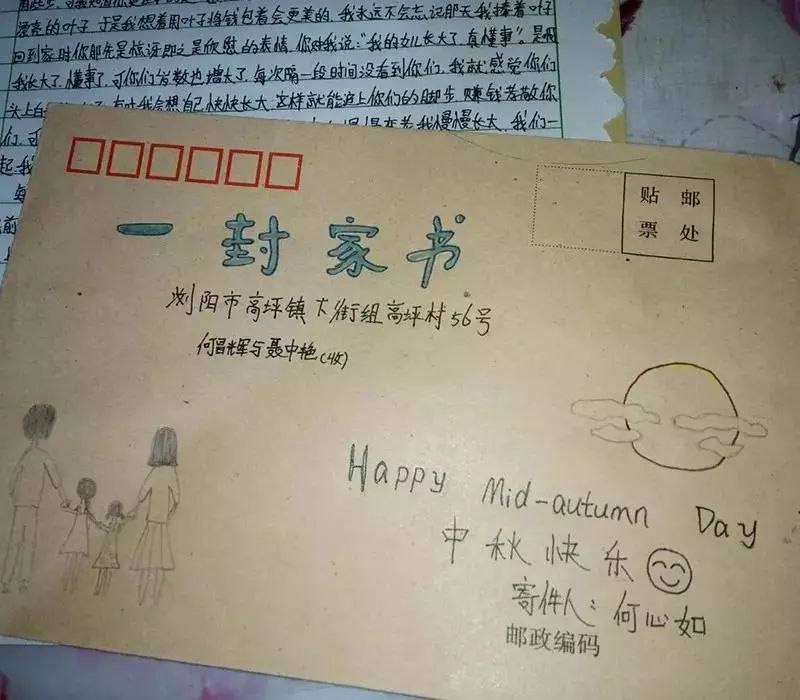 漂亮的叶子,于是我想着用叶子将钱包着会更美的,我永远不会忘记那天我捧着叶子
回到家时你那先是惊讶即之是欣慰的表情,你对我说:“我的女儿长大了,真懂事”。是啊
我长大了,懂事了,可你们岁数也增大了,每次隔一段时间没看到你们,我就感觉你们
头上白
有时我会想自己快快长大,这样就能追上你们的脚步,赚钱孝敬你
们,可
我慢慢长大,我们一
起
每
前
上
贴 邮
票 处
一封家书
浏阳市高坪镇大街组高坪村56号
何昌辉与聂中艳(收)
Happy Mid-autumn Day
中秋快乐
寄件人:何心如
邮政编码